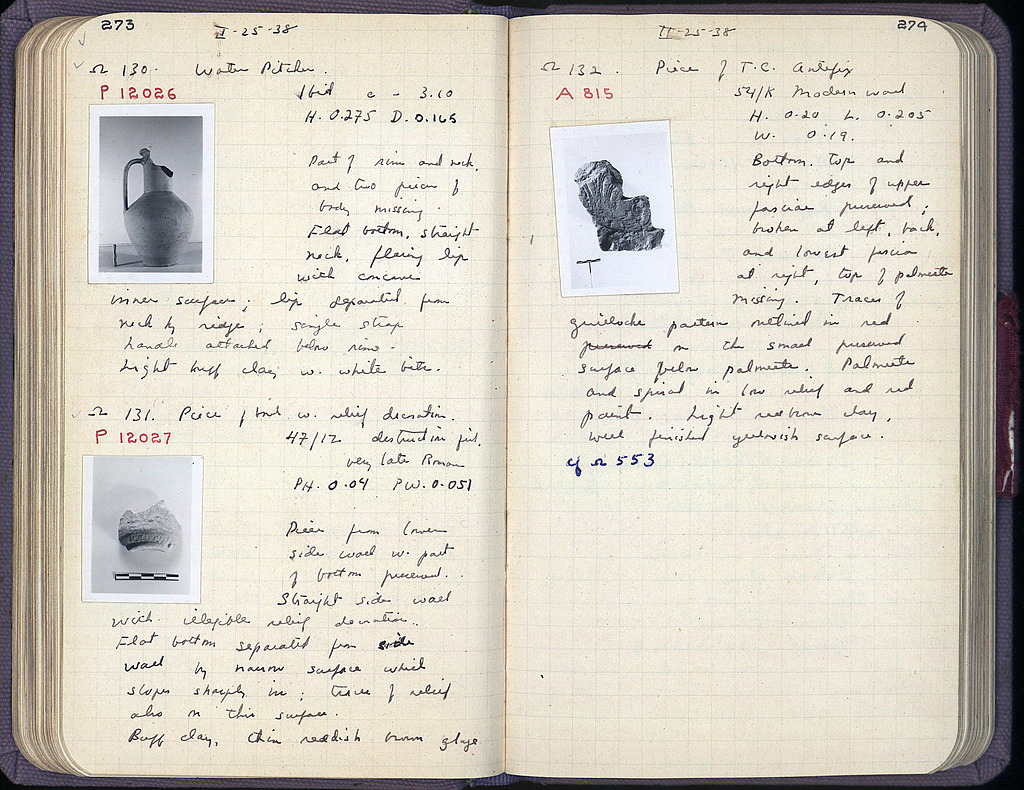 273
II-25-38
Ω 130. Water Pitcher.
P 12026
Ibid c - 3.10
H. 0.275 D. 0.165
Part of rim and neck,
and two pieces of
body missing.
Flat bottom, straight
neck, flaring lip
with concave
inner surface; lip separated from
neck by ridge; single strap
handle attached below rim.
Light buff clay w. white bits.
Ω 131. Piece of bowl w. relief decoration.
P 12027
47/12 destruction fill,
very late Roman
PH. 0.04 PW. 0.051
Piece from lower
side wall w. part
of bottom preserved.
Straight side wall
with illegible relief decoration.
Flat bottom separated from side
wall by narrow surface which
slopes sharply in; traces of relief
also on this surface.
Buff clay, thin reddish brown glaze
274
II-25-38
Ω 132. Piece of T.C. Antefix
A 815
54/K Modern wall
H. 0.20 L. 0.205
W. 0.19.
Bottom, top and
right edges of upper
fasciae preserved;
broken at left, back,
and lowest fascia
at right, top of palmette
missing. Traces of
guilloche pattern outlined in red
preserved on the small preserved
surface below palmette. Palmette
and spiral in low relief and red
paint. Light red brown clay,
well finished yellowish surface.
cf Ω 553